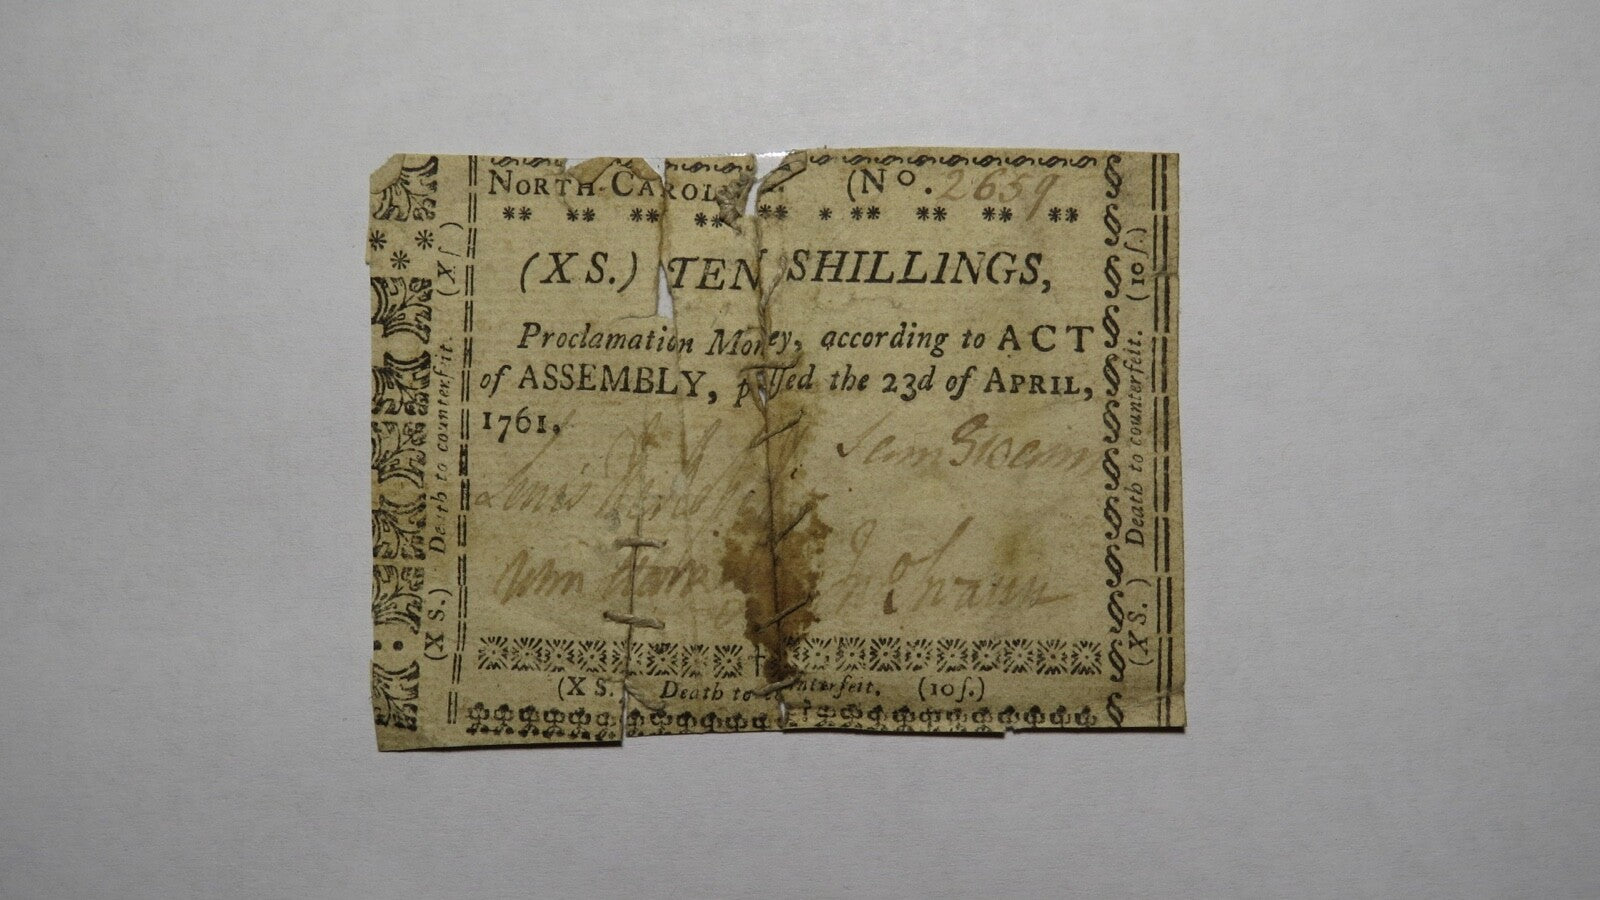 NORTH-CAROL (No. 2659
(X S.) TEN SHILLINGS,
Proclamation Money, according to ACT
of ASSEMBLY, paſſed the 23d of APRIL,
1761.
Sam Swann
Lewis
John J Swann
(X S.) Death to counterfeit. (Xſ)
(X S.) Death to counterfeit. (10ſ.)
(X S. Death to counterfeit. (10ſ.)